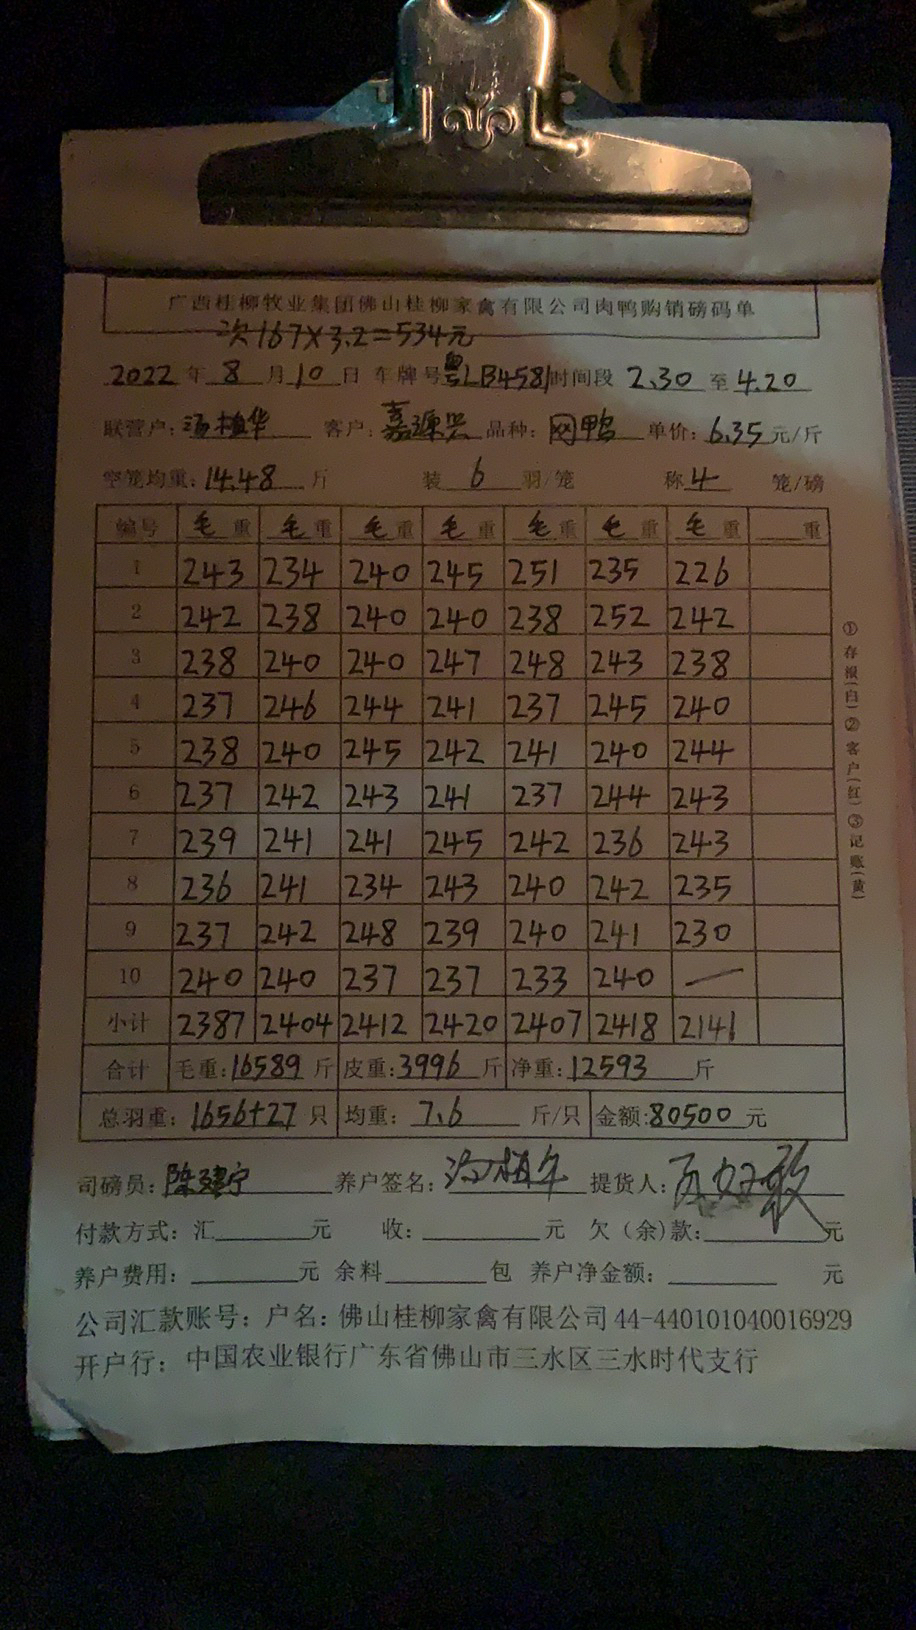 广西桂柳牧业集团佛山桂柳家禽有限公司肉鸭购销磅码单
次167×3.2=534元
2022年8月10日 车牌号粤LB4581时间段2.30至4.20
联营户:汤植华 客户:嘉源兴 品种:网鸭 单价:6.35元/斤
空笼均重:14.48斤 装6羽/笼 称4笼/磅
编号 毛重 毛重 毛重 毛重 毛重 毛重 毛重 重
1 243 234 240 245 251 235 226
2 242 238 240 240 238 252 242
3 238 240 240 247 248 243 238
4 237 246 244 241 237 245 240
5 238 240 245 242 241 240 244
6 237 242 243 241 237 244 243
7 239 241 241 245 242 236 243
8 236 241 234 243 240 242 235
9 237 242 248 239 240 241 230
10 240 240 237 237 233 240 —
小计 2387 2404 2412 2420 2407 2418 2141
合计 毛重:16589斤 皮重:3996斤 净重:12593斤
总羽重:1656+27只 均重:7.6斤/只 金额:80500元
司磅员:陈建宁 养户签名: 提货人:
付款方式:汇 元 收: 元 欠(余)款: 元
养户费用: 元 余料 包 养户净金额: 元
公司汇款账号:户名:佛山桂柳家禽有限公司44-440101040016929
开户行:中国农业银行广东省佛山市三水区三水时代支行
①存根(白)②客户(红)③记账(黄)